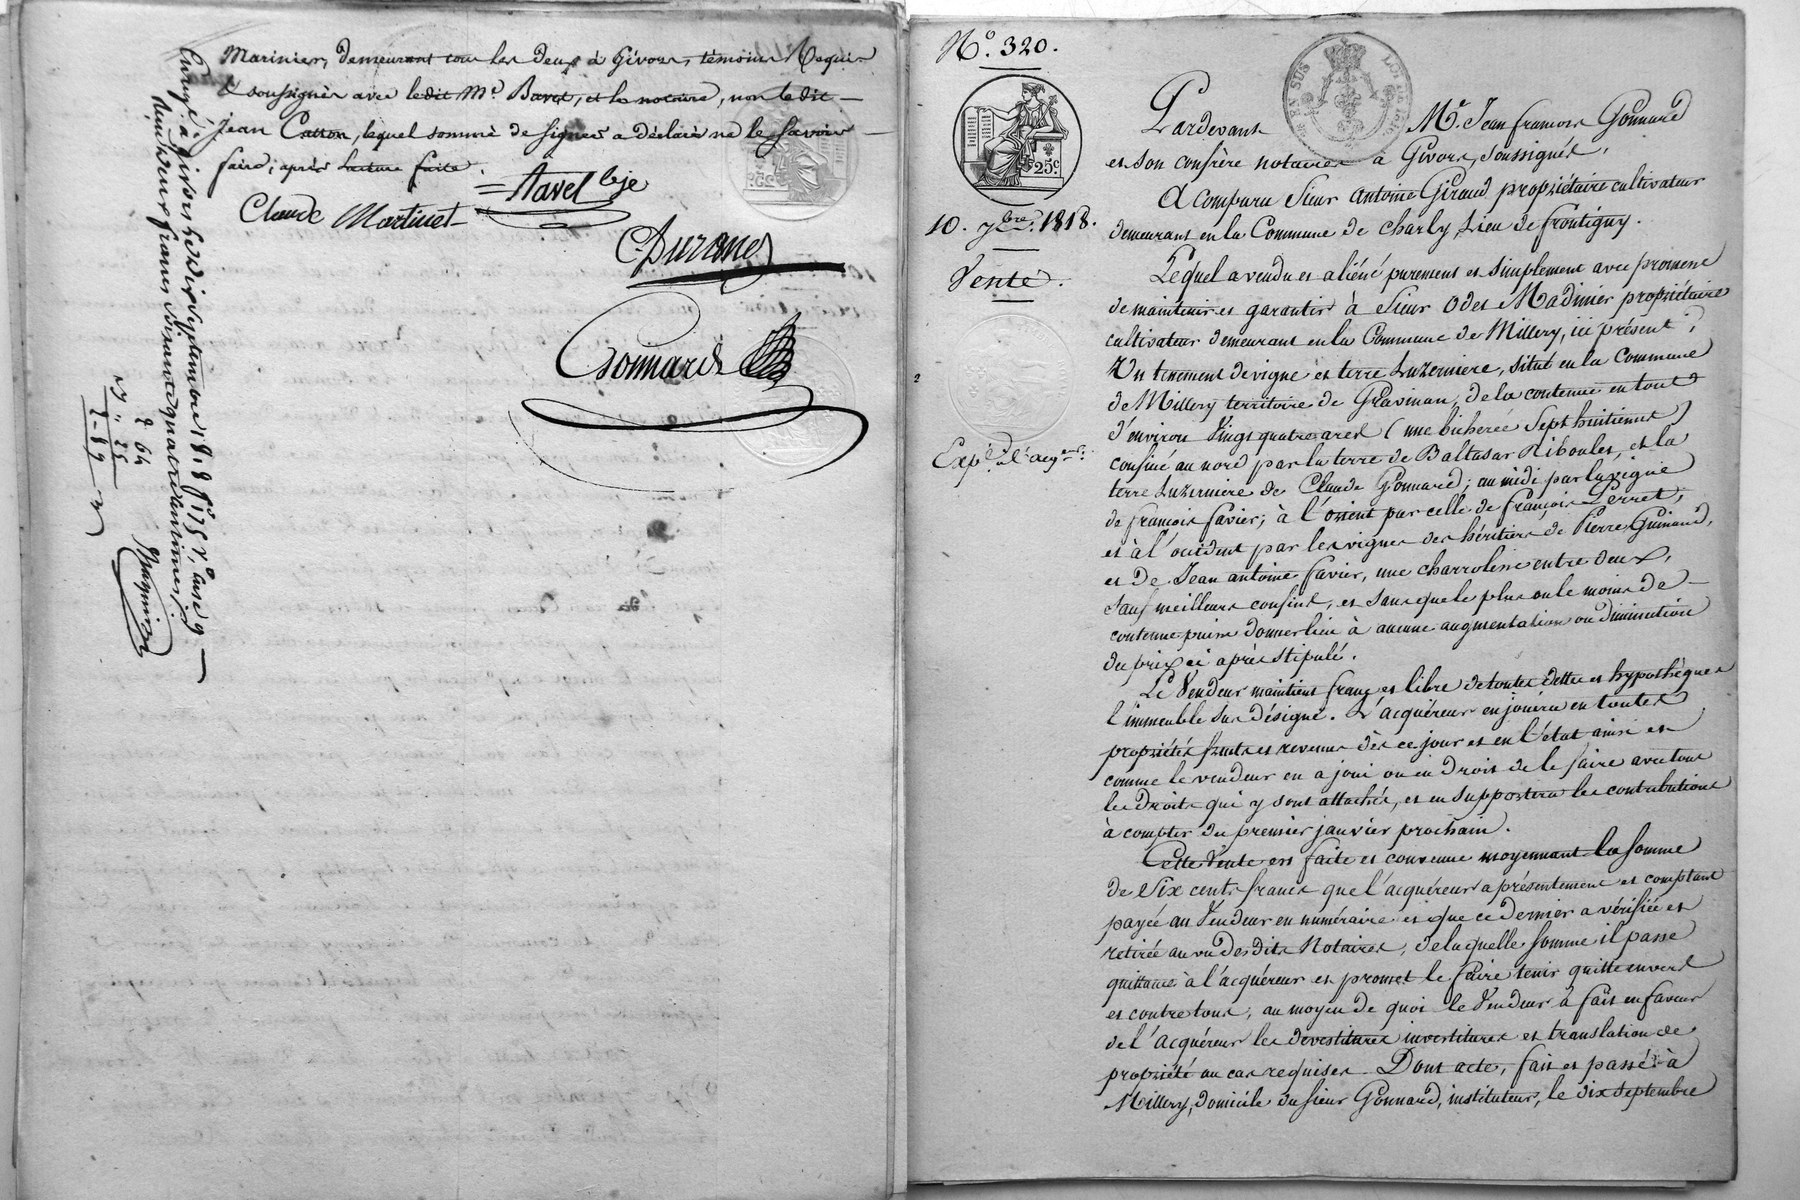 Marinier, demeurant tous les deux à Givors, témoins requis
& soussignés avec ledit Me. Bavet, et les notaires, non ledit
Jean Caston, lequel sommé de signer a déclaré ne le savoir
faire; après lecture faite.
Claude Martinet
C. Durone
Gonnard
Enregé. à Givors le dix Septembre 1818 fo. 175 vo. case 9
deux francs soixante quatre centimes,
2 64
" 25
2 - 89
No. 320.
25c.
EN SUS
10. 7bre. 1818.
Vente.
2
Pardevant Me. Jean françois Gonnard
et son confrère notaires à Givors, soussignés,
A comparu Sieur antoine Giraud propriétaire cultivateur
demeurant en la Commune de Charly, Lieu de frontigny.
Lequel a vendu et aliéné purement et simplement avec promesse
de maintenir et garantir à Sieur Odet Madinier propriétaire
cultivateur demeurant en la Commune de Millery, ici présent;
Un tènement de vigne et terre Luzerniere, situé en la Commune
de Millery territoire de Grasman, de la contenue en tout
d'environ Vingt quatre ares (une bicherée Sept huitiemes)
confiné au nord par la terre de Baltasar Riboulet, et la
terre Luzerniere de Claude Gonnard; au midi par la vigne
de françois favier; à l'orient par celle de françois Perret;
et à l'occident par les vignes des héritiers de Pierre Guinand,
et de Jean antoine favier, une charroliere entre deux,
sauf meilleurs confins, et sans que le plus ou le moins de
contenue puisse donner lieu à aucune augmentation ou diminution
du prix ci après stipulé.
Le Vendeur maintient franc et libre de toutes dettes et hypothèques
l'immeuble sus désigné. L'acquéreur en jouira en toutes
propriétés fruits et revenus dès ce jour et en l'état ainsi et
comme le vendeur en a joui ou eu Droit de le faire avec tous
les Droits qui y sont attachés, et en supportera les contributions
à compter du premier janvier prochain.
Cette Vente est faite et convenue moyennant la somme
de Six cents francs que l'acquéreur a présentement et comptant
payée au Vendeur en numéraire et que ce dernier a vérifiée et
retirée au vu desdits Notaires, de laquelle somme il passe
quittance à l'acquéreur et promet le faire tenir quitte envers
et contre tous, au moyen de quoi le Vendeur a fait en faveur
de l'acquéreur les devestitures investitures et translation de
propriété au cas requises. Dont acte, fait et passé à
Millery, domicile du sieur Gonnard, instituteur, le dix septembre